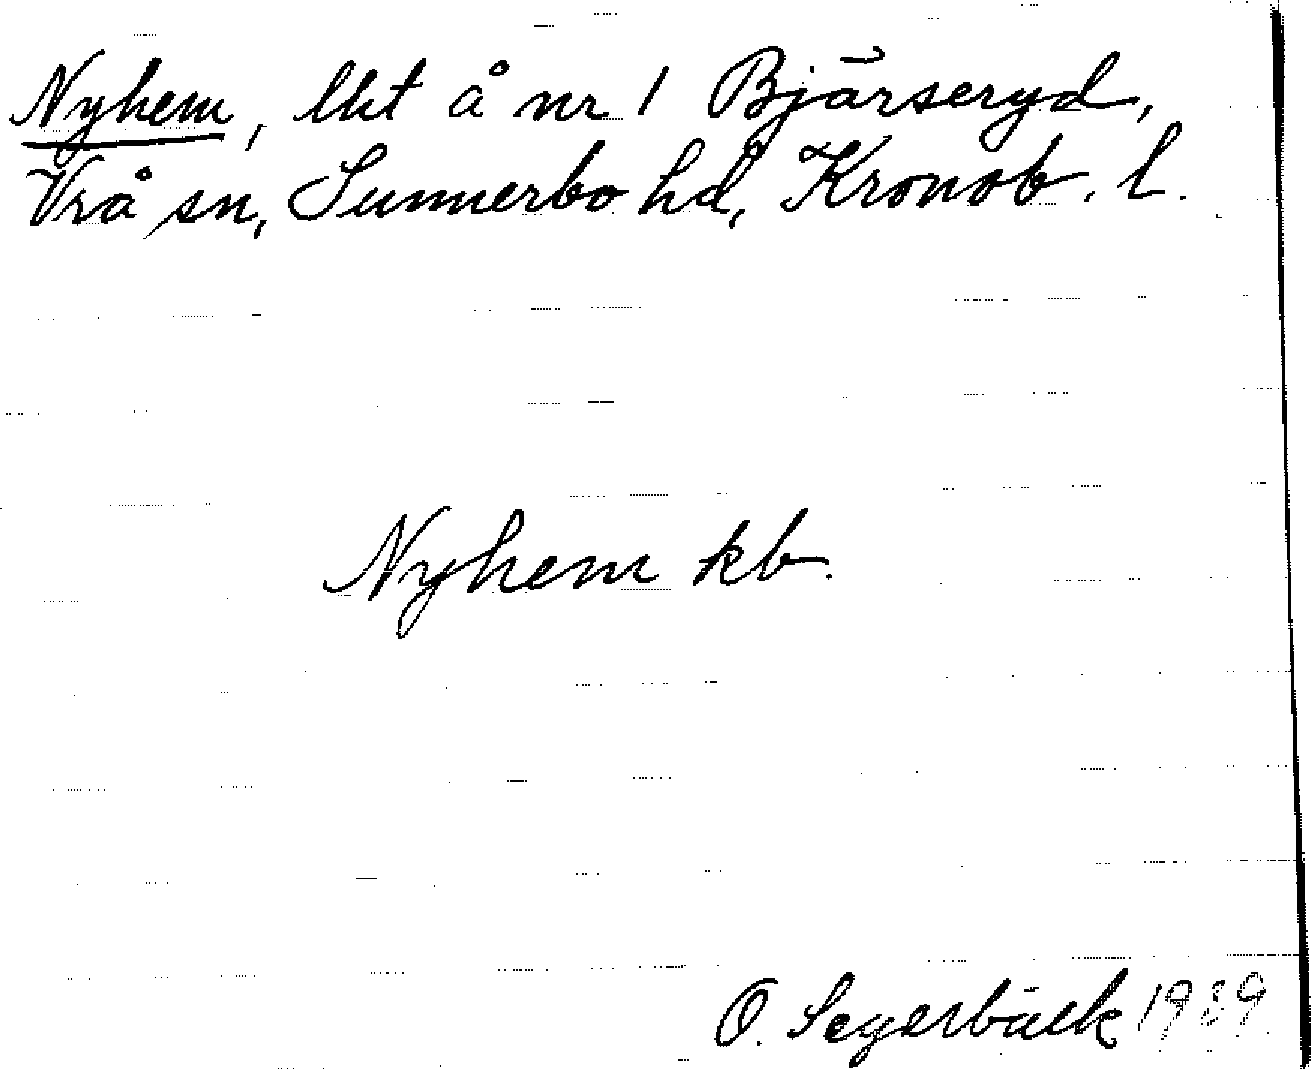 Nyhem, lht å nr 1 Bjärseryd,
Vrå sn, Sunnerbo hd, Kronob. l.
Nyhem kb.
O. Segerbäck 1939.